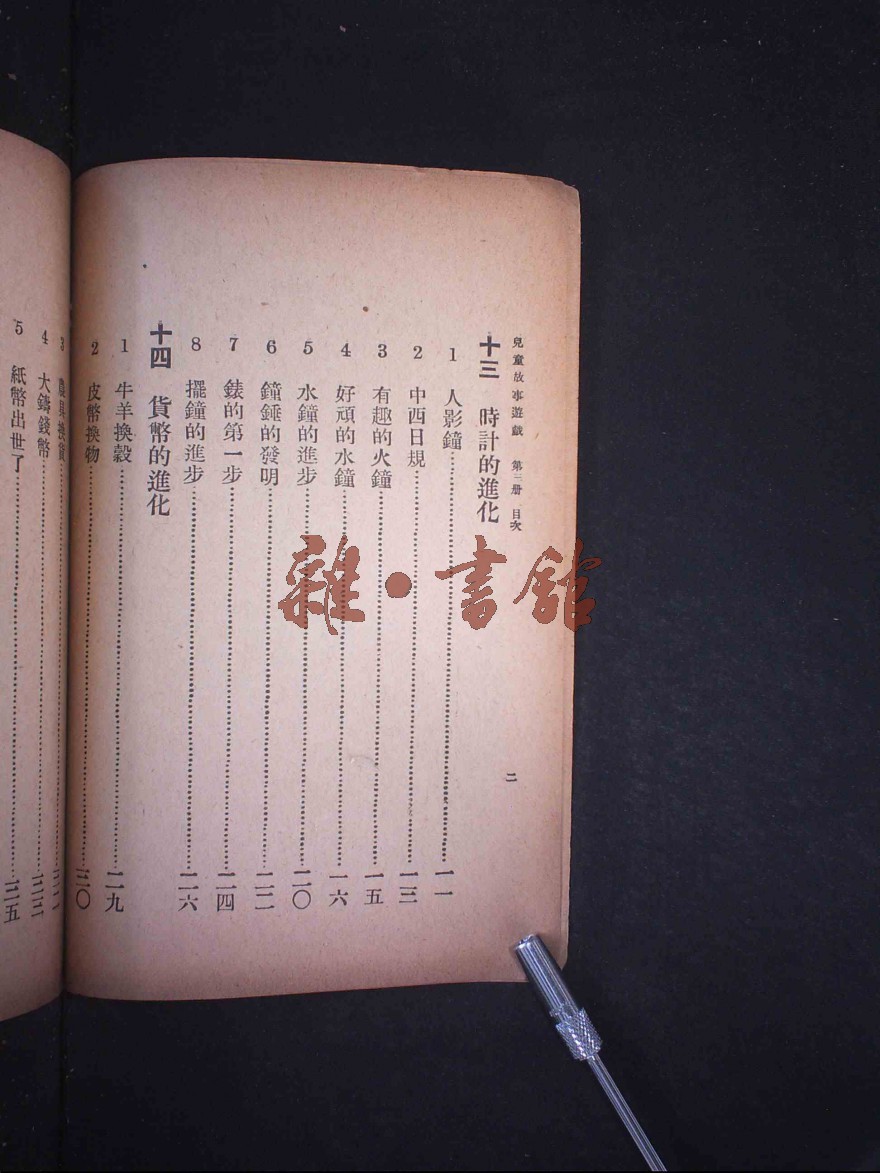 兒童故事遊戲 第三册 目次
二
十三 時計的進化
1 人影鐘 一一
2 中西日規 一三
3 有趣的火鐘 一五
4 好頑的水鐘 一六
5 水鐘的進步 二〇
6 鐘錘的發明 二二
7 錶的第一步 二四
8 擺鐘的進步 二六
十四 貨幣的進化
1 牛羊換穀 二九
2 皮幣換物 三〇
3 農具換貨
4 大鑄錢幣 三三
5 紙幣出世了 三五
雜·書館